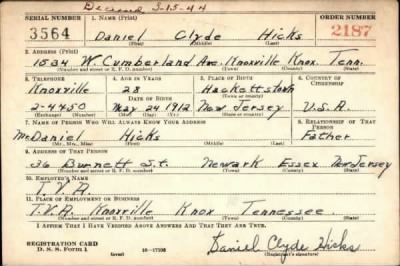 Deceased 3-15-44
SERIAL NUMBER 1. NAME (Print) ORDER NUMBER
3564 Daniel Clyde Hicks 2187
(First) (Middle) (Last)
2. ADDRESS (Print)
1534 W Cumberland Ave. Knoxville Knox Tenn.
(Number and street or R. F. D. number) (Town) (County) (State)
3. TELEPHONE 4. AGE IN YEARS 5. PLACE OF BIRTH 6. COUNTRY OF CITIZENSHIP
Knoxville 28 Hackettstown
DATE OF BIRTH (Town or county)
2-4450 May 24 1912 New Jersey U.S.A.
(Exchange) (Number) (Mo.) (Day) (Yr.) (State or country)
7. NAME OF PERSON WHO WILL ALWAYS KNOW YOUR ADDRESS 8. RELATIONSHIP OF THAT PERSON
McDaniel Hicks Father
(Mr., Mrs., Miss) (First) (Middle) (Last)
9. ADDRESS OF THAT PERSON
36 Burnett St. Newark Essex New Jersey
(Number and street or R. F. D. number) (Town) (County) (State)
10. EMPLOYER'S NAME
T.V.A.
11. PLACE OF EMPLOYMENT OR BUSINESS
T.V.A. Knoxville Knox Tennessee
(Number and street or R. F. D. number) (Town) (County) (State)
I AFFIRM THAT I HAVE VERIFIED ABOVE ANSWERS AND THAT THEY ARE TRUE.
REGISTRATION CARD
D. S. S. Form 1 (over) Daniel Clyde Hicks
(Registrant's signature)